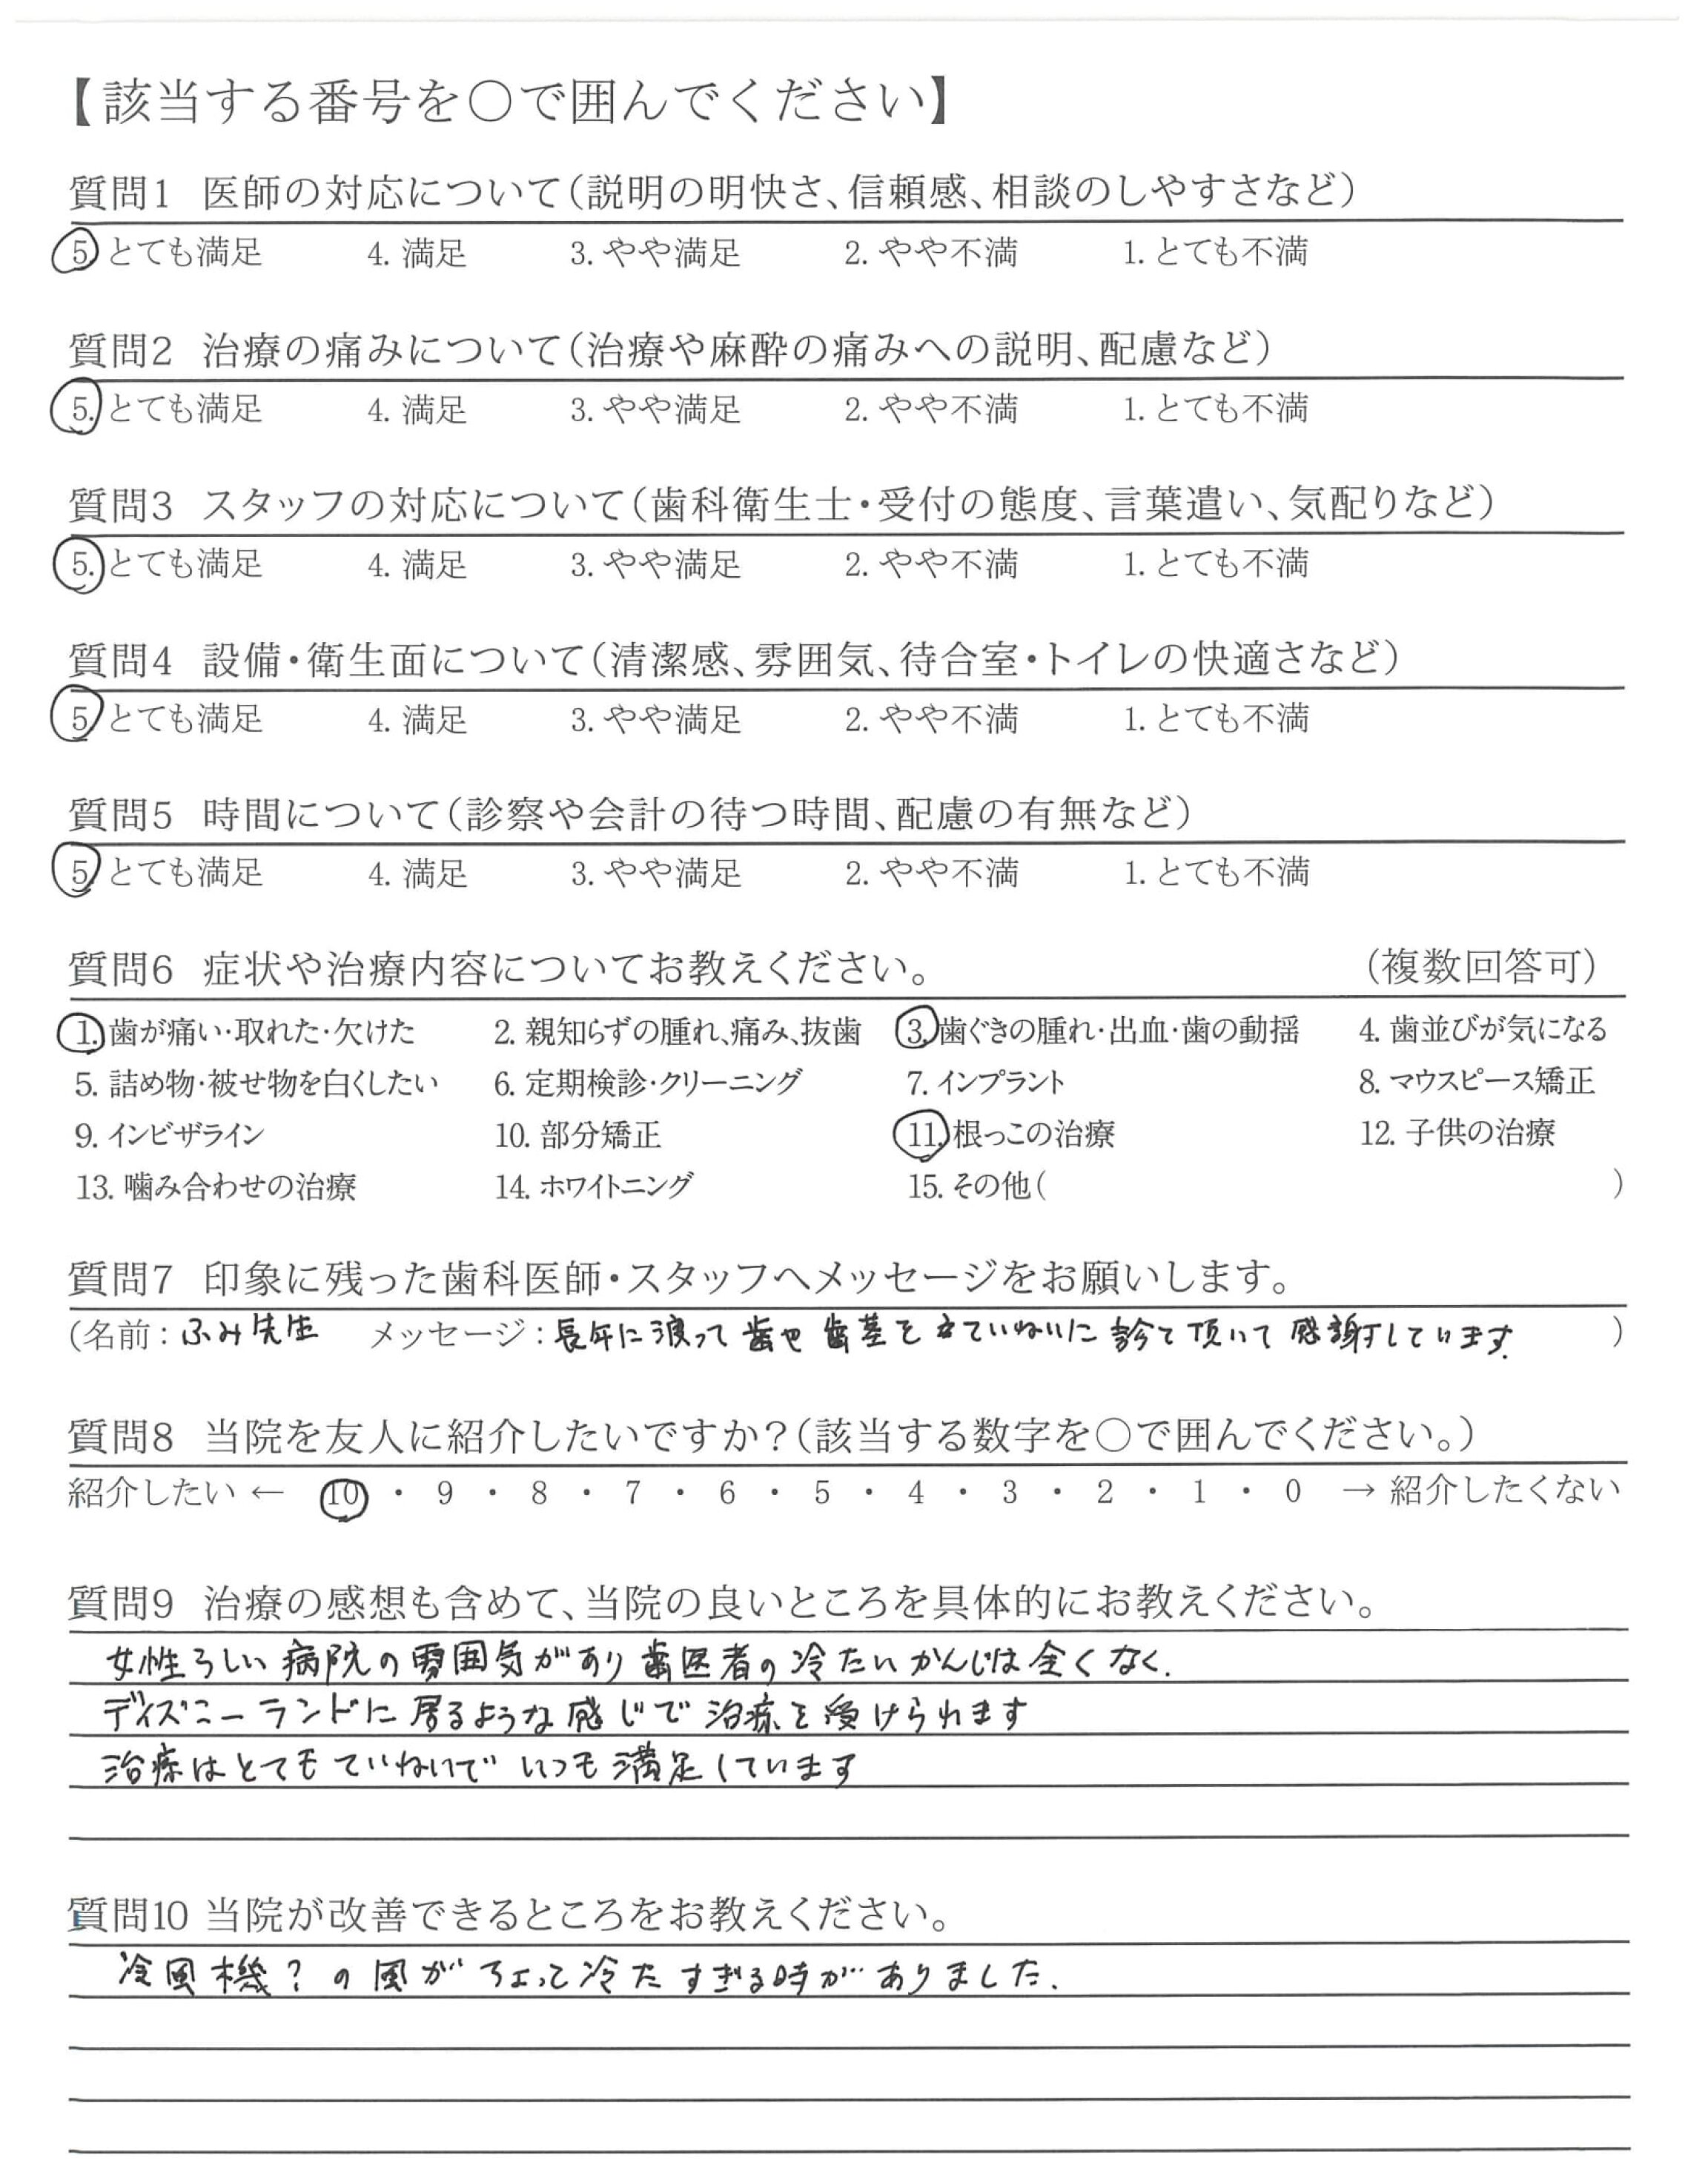 【該当する番号を○で囲んでください】
質問1 医師の対応について（説明の明快さ、信頼感、相談のしやすさなど）
5. とても満足 4. 満足 3. やや満足 2. やや不満 1. とても不満
質問2 治療の痛みについて（治療や麻酔の痛みへの説明、配慮など）
5. とても満足 4. 満足 3. やや満足 2. やや不満 1. とても不満
質問3 スタッフの対応について（歯科衛生士・受付の態度、言葉遣い、気配りなど）
5. とても満足 4. 満足 3. やや満足 2. やや不満 1. とても不満
質問4 設備・衛生面について（清潔感、雰囲気、待合室・トイレの快適さなど）
5. とても満足 4. 満足 3. やや満足 2. やや不満 1. とても不満
質問5 時間について（診察や会計の待つ時間、配慮の有無など）
5. とても満足 4. 満足 3. やや満足 2. やや不満 1. とても不満
質問6 症状や治療内容についてお教えください。 （複数回答可）
1. 歯が痛い・取れた・欠けた 2. 親知らずの腫れ、痛み、抜歯 3. 歯ぐきの腫れ・出血・歯の動揺 4. 歯並びが気になる
5. 詰め物・被せ物を白くしたい 6. 定期検診・クリーニング 7. インプラント 8. マウスピース矯正
9. インビザライン 10. 部分矯正 11. 根っこの治療 12. 子供の治療
13. 噛み合わせの治療 14. ホワイトニング 15. その他（ ）
質問7 印象に残った歯科医師・スタッフへメッセージをお願いします。
（名前：ふみ先生 メッセージ：長年に渡って歯や歯茎を ていねいに診て頂いて感謝しています. ）
質問8 当院を友人に紹介したいですか？（該当する数字を○で囲んでください。）
紹介したい ← 10 ・ 9 ・ 8 ・ 7 ・ 6 ・ 5 ・ 4 ・ 3 ・ 2 ・ 1 ・ 0 → 紹介したくない
質問9 治療の感想も含めて、当院の良いところを具体的にお教えください。
女性らしい病院の雰囲気があり歯医者の冷たいかんじは全くなく.
ディズニーランドに居るような感じで治療を受けられます
治療はとてもていねいでいつも満足しています
質問10 当院が改善できるところをお教えください。
冷風機？の風がちょっと冷たすぎる時がありました.